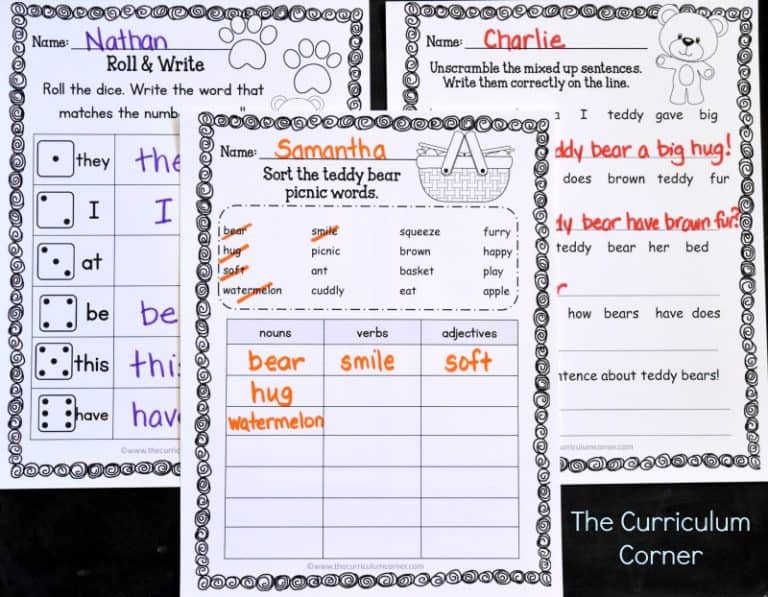 Name: Nathan
Roll & Write
Roll the dice. Write the word that
matches the
they the
I I
at
be be
this this
have have
©www.thecurri
Name: Samantha
Sort the teddy bear
picnic words.
bear smile squeeze furry
hug picnic brown happy
soft ant basket play
watermelon cuddly eat apple
nouns verbs adjectives
bear smile soft
hug
watermelon
©www.thecurriculumcorner.com
Name: Charlie
Unscramble the mixed up sentences.
Write them correctly on the line.
a I teddy gave big
bear a big hug!
does brown teddy fur
bear have brown fur?
teddy bear her bed
how bears have does
about teddy bears!
urriculumcorner.com
The Curriculum
Corner